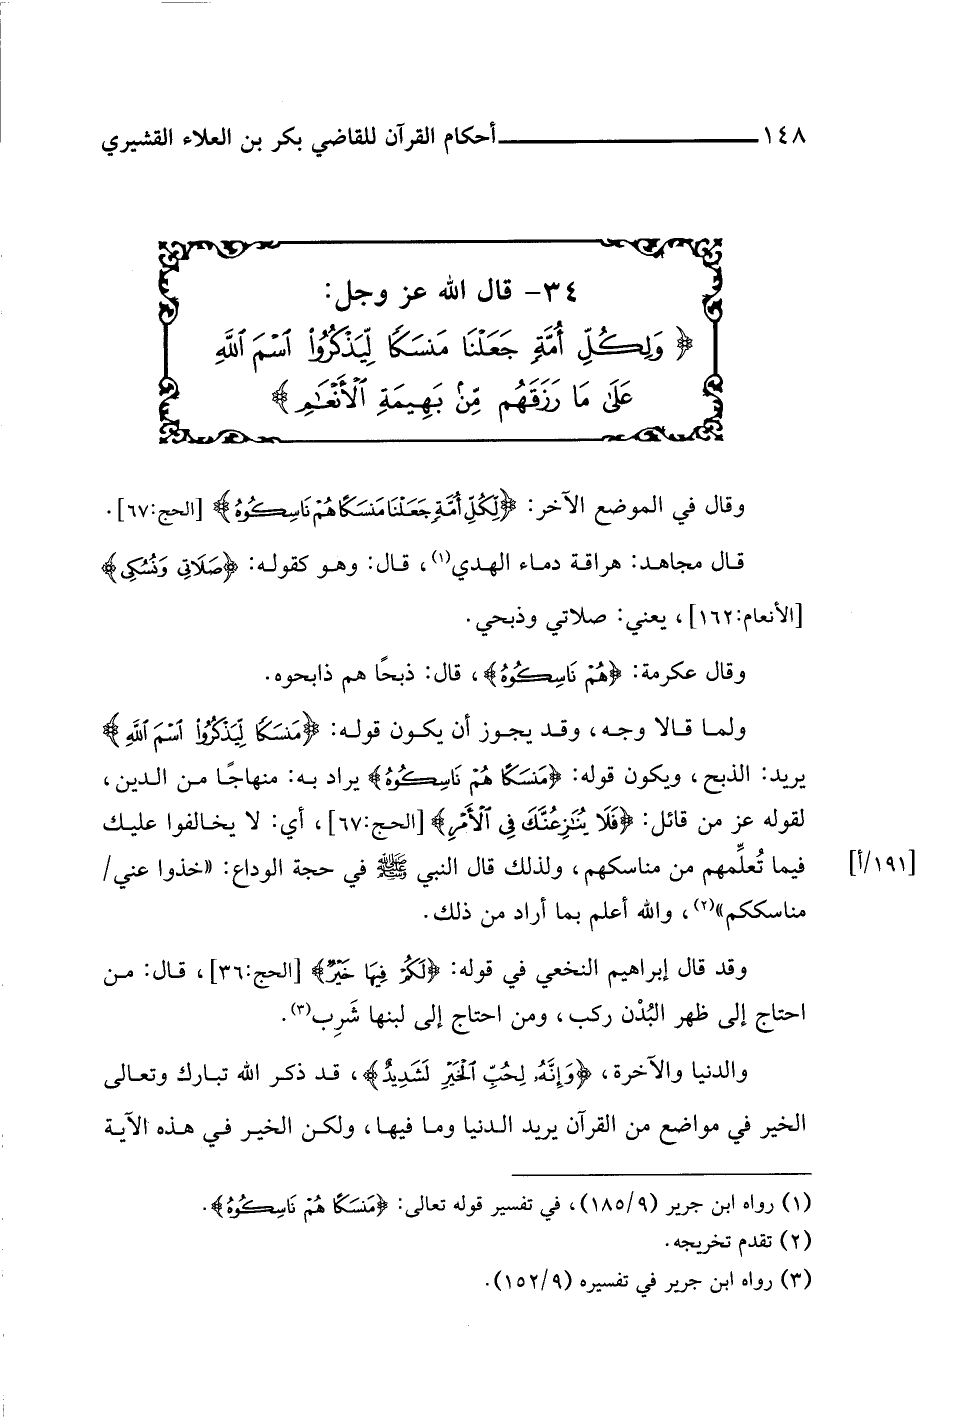 ١٤٨ أحكام القرآن للقاضي بكر بن العلاء القشيري
٣٤- قال الله عز وجل:
﴿ وَلِكُلِّ أُمَّةٍ جَعَلْنَا مَنسَكًا لِّيَذْكُرُوا۟ ٱسْمَ ٱللَّهِ
عَلَىٰ مَا رَزَقَهُم مِّنۢ بَهِيمَةِ ٱلْأَنْعَـٰمِ ﴾
وقال في الموضع الآخر: ﴿لِّكُلِّ أُمَّةٍ جَعَلْنَا مَنسَكًا هُمْ نَاسِكُوهُ﴾ [الحج:٦٧].
قال مجاهد: هراقة دماء الهدي(١)، قال: وهو كقوله: ﴿صَلَاتِى وَنُسُكِى﴾
[الأنعام:١٦٢]، يعني: صلاتي وذبحي.
وقال عكرمة: ﴿هُمْ نَاسِكُوهُ﴾، قال: ذبحًا هم ذابحوه.
ولما قالا وجه، وقد يجوز أن يكون قوله: ﴿مَنسَكًا لِيَذْكُرُوا۟ ٱسْمَ ٱللَّهِ﴾
يريد: الذبح، ويكون قوله: ﴿مَنسَكًا هُمْ نَاسِكُوهُ﴾ يراد به: منهاجًا من الدين،
لقوله عز من قائل: ﴿فَلَا يُنَـٰزِعُنَّكَ فِى ٱلْأَمْرِ﴾ [الحج:٦٧]، أي: لا يخالفوا عليك
فيما تُعلِّمهم من مناسكهم، ولذلك قال النبي ﷺ في حجة الوداع: «خذوا عني/ [١٩١/أ]
مناسككم»(٢)، والله أعلم بما أراد من ذلك.
وقد قال إبراهيم النخعي في قوله: ﴿لَكُمْ فِيهَا خَيْرٌ﴾ [الحج:٣٦]، قال: من
احتاج إلى ظهر البُدْن ركب، ومن احتاج إلى لبنها شَرِب(٣).
والدنيا والآخرة، ﴿وَإِنَّهُۥ لِحُبِّ ٱلْخَيْرِ لَشَدِيدٌ﴾، قد ذكر الله تبارك وتعالى
الخير في مواضع من القرآن يريد الدنيا وما فيها، ولكن الخير في هذه الآية
(١) رواه ابن جرير (١٨٥/٩)، في تفسير قوله تعالى: ﴿مَنسَكًا هُمْ نَاسِكُوهُ﴾.
(٢) تقدم تخريجه.
(٣) رواه ابن جرير في تفسيره (١٥٢/٩).